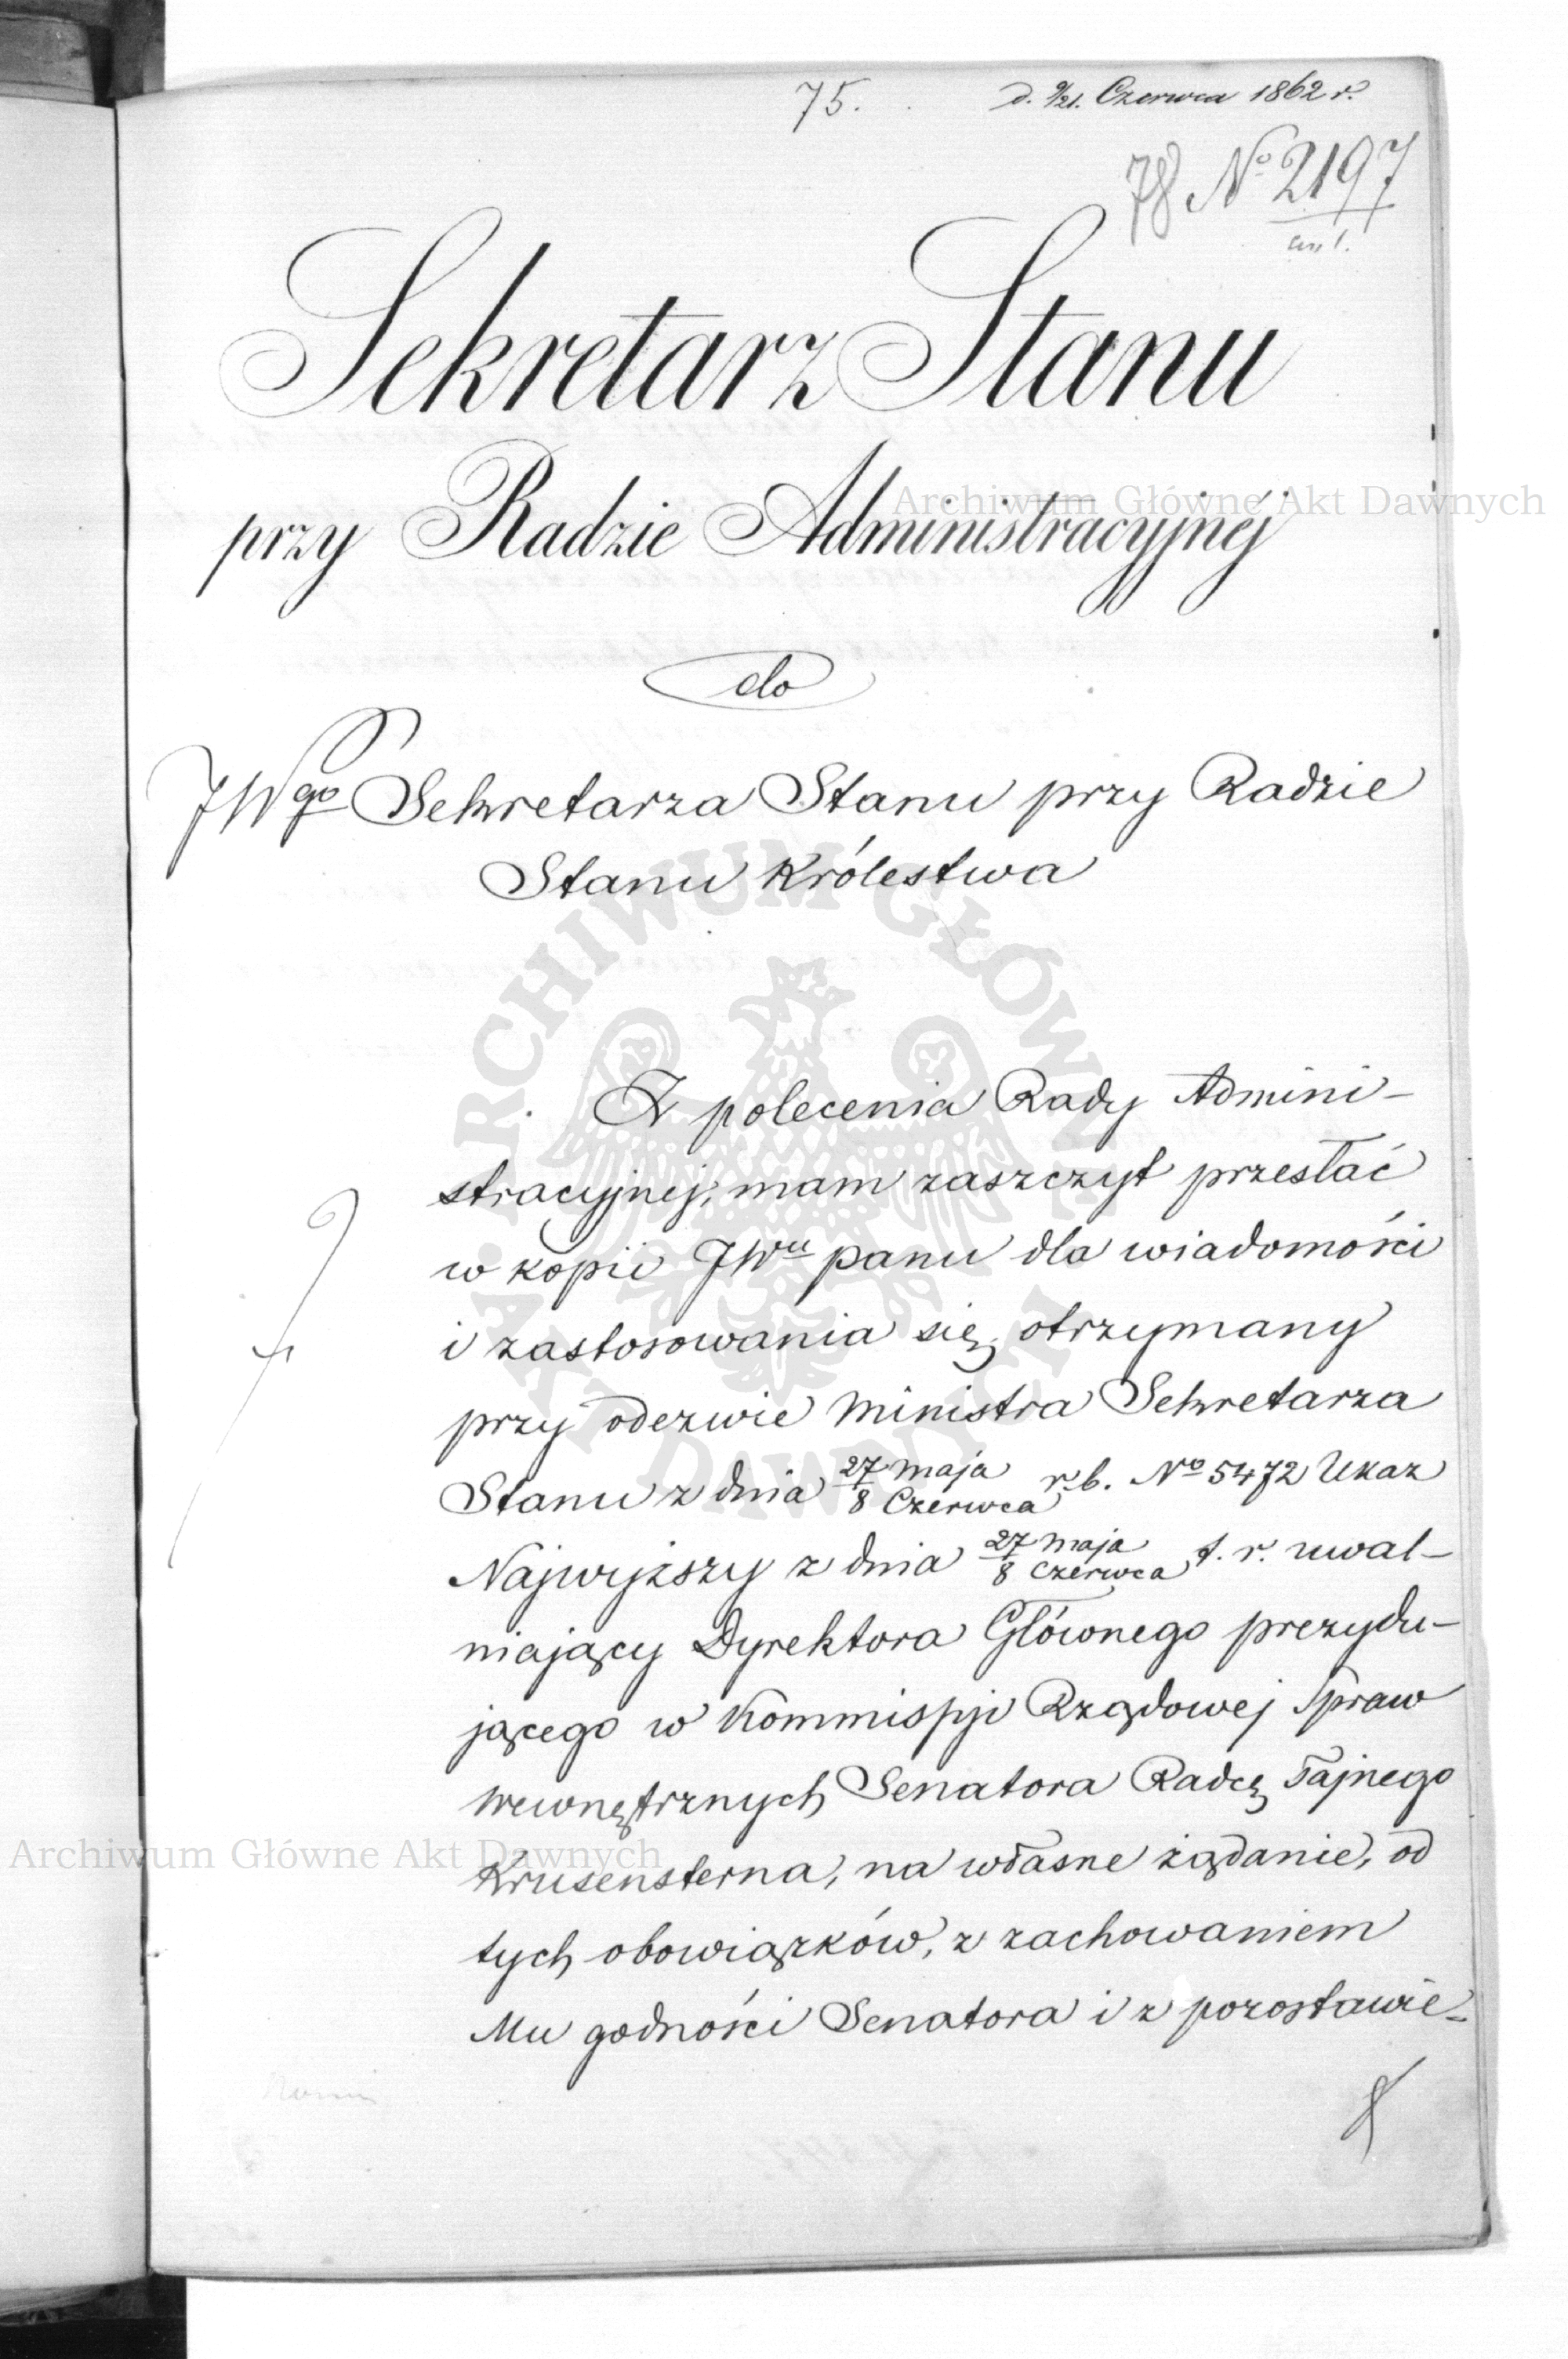 75.
d. 9/21. Czerwca 1862 r.
78 Nº 2197
Sekretarz Stanu
przy Radzie Administracyjnéj
do
JWgo Sekretarza Stanu przy Radzie
Stanu Królestwa
Z polecenia Rady Admini-
stracyjnej, mam zaszczyt przesłać
w kopii JWu panu dla wiadomości
i zastosowania się, otrzymany
przy odezwie Ministra Sekretarza
Stanu z dnia 27 Maja / 8 Czerwca r. b. Nº 5472 Ukaz
Najwyższy z dnia 27 Maja / 8 Czerwca t. r. uwal-
niający Dyrektora Głównego prezydu-
jącego w Kommissyi Rządowej Spraw
Wewnętrznych Senatora Radcę Tajnego
Krusensterna, na własne żądanie, od
tych obowiązków, z zachowaniem
Mu godności Senatora i z pozostawie-
Archiwum Główne Akt Dawnych
Archiwum Główne Akt Dawnych
ARCHIWUM GŁÓWNE AKT DAWNYCH